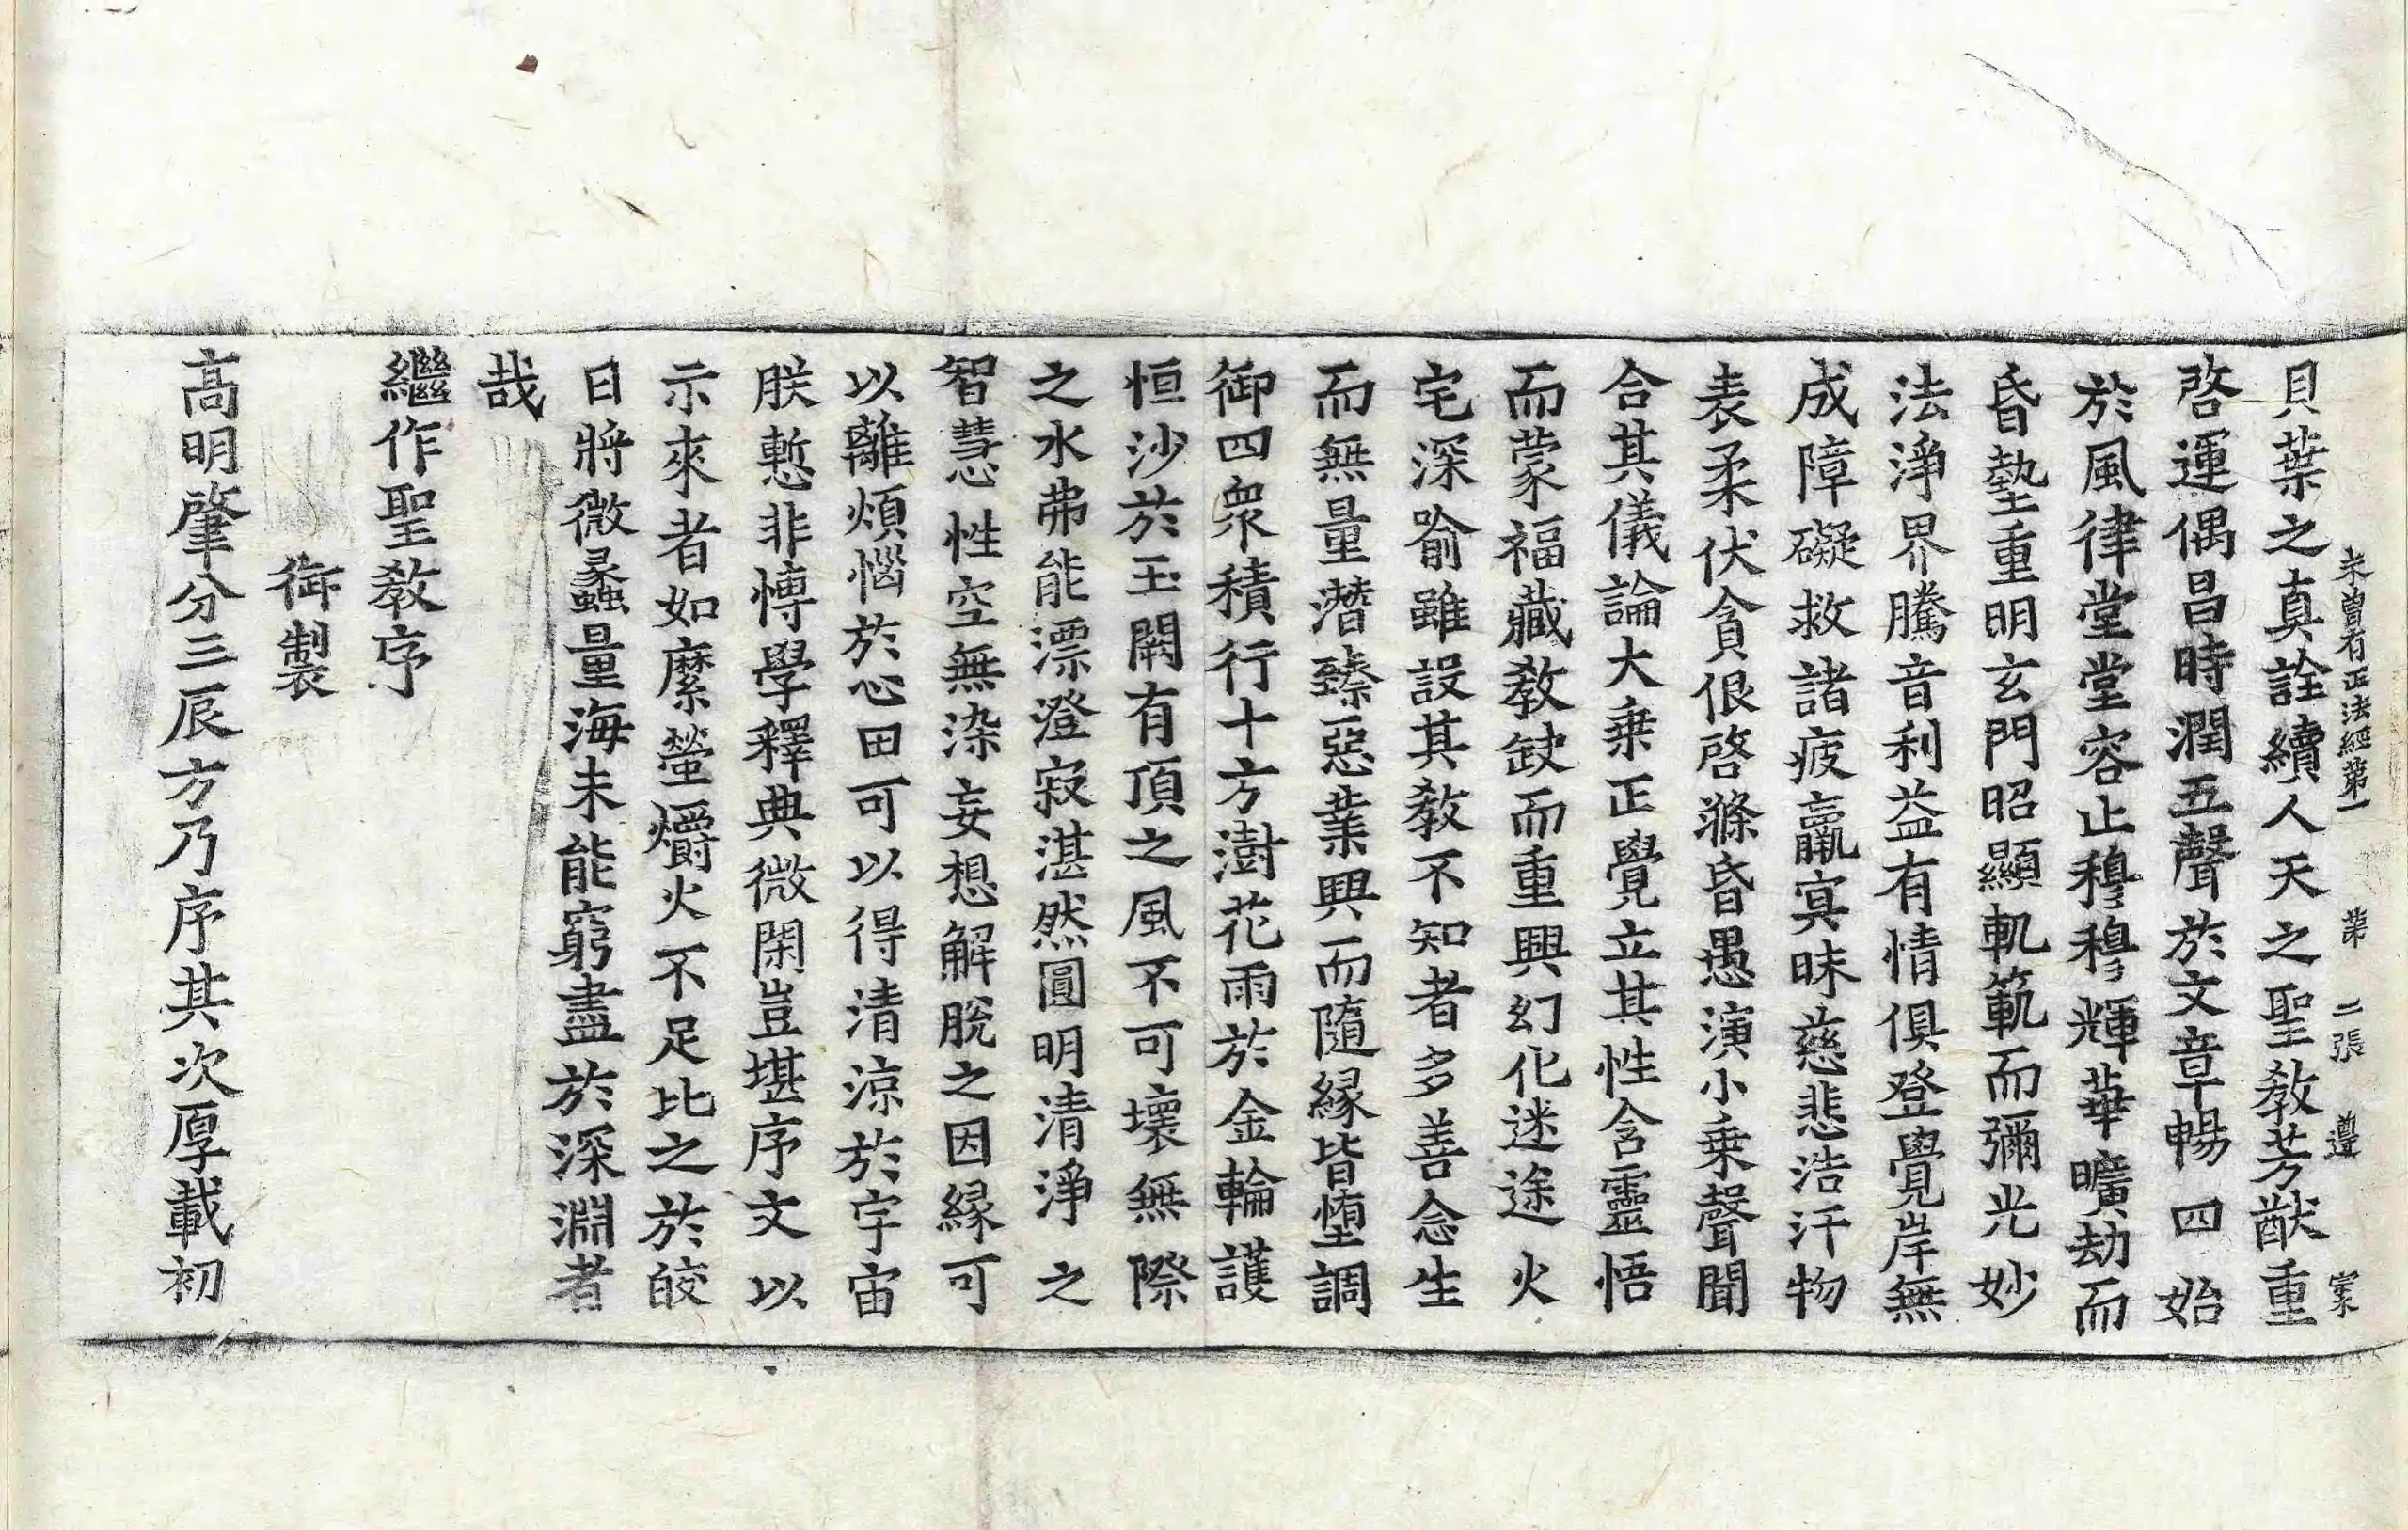 未曾有正法經第一 第二張 遵 䝉
貝葉之真詮續人天之聖教芳猷重
啓運偶昌時潤五聲於文章暢四始
於風律堂堂容止穆穆輝華曠劫而
昏墊重明玄門昭顯軌範而彌光妙
法淨界騰音利益有情俱登覺岸無
成障礙救諸疲羸冥昧慈悲浩汗物
表柔伏貪佷啓滌昏愚演小乗聲聞
合其儀論大乗正覺立其性含靈悟
而蒙福藏教缺而重興幻化迷途火
宅深喻雖設其教不知者多善念生
而無量潛臻惡業興而隨縁皆墮調
御四衆積行十方澍花雨於金輪護
恒沙於玉闕有頂之風不可壞無際
之水弗能漂澄寂湛然圓明清淨之
智慧性空無染妄想解脫之因縁可
以離煩惱於心田可以得清涼於宇宙
朕慙非博學釋典微閑豈堪序文以
示來者如縻螢爝火不足比之於皎
日將微蠡量海未能窮盡於深淵者
哉
繼作聖教序
御製
高明肇分三辰方乃序其次厚載初